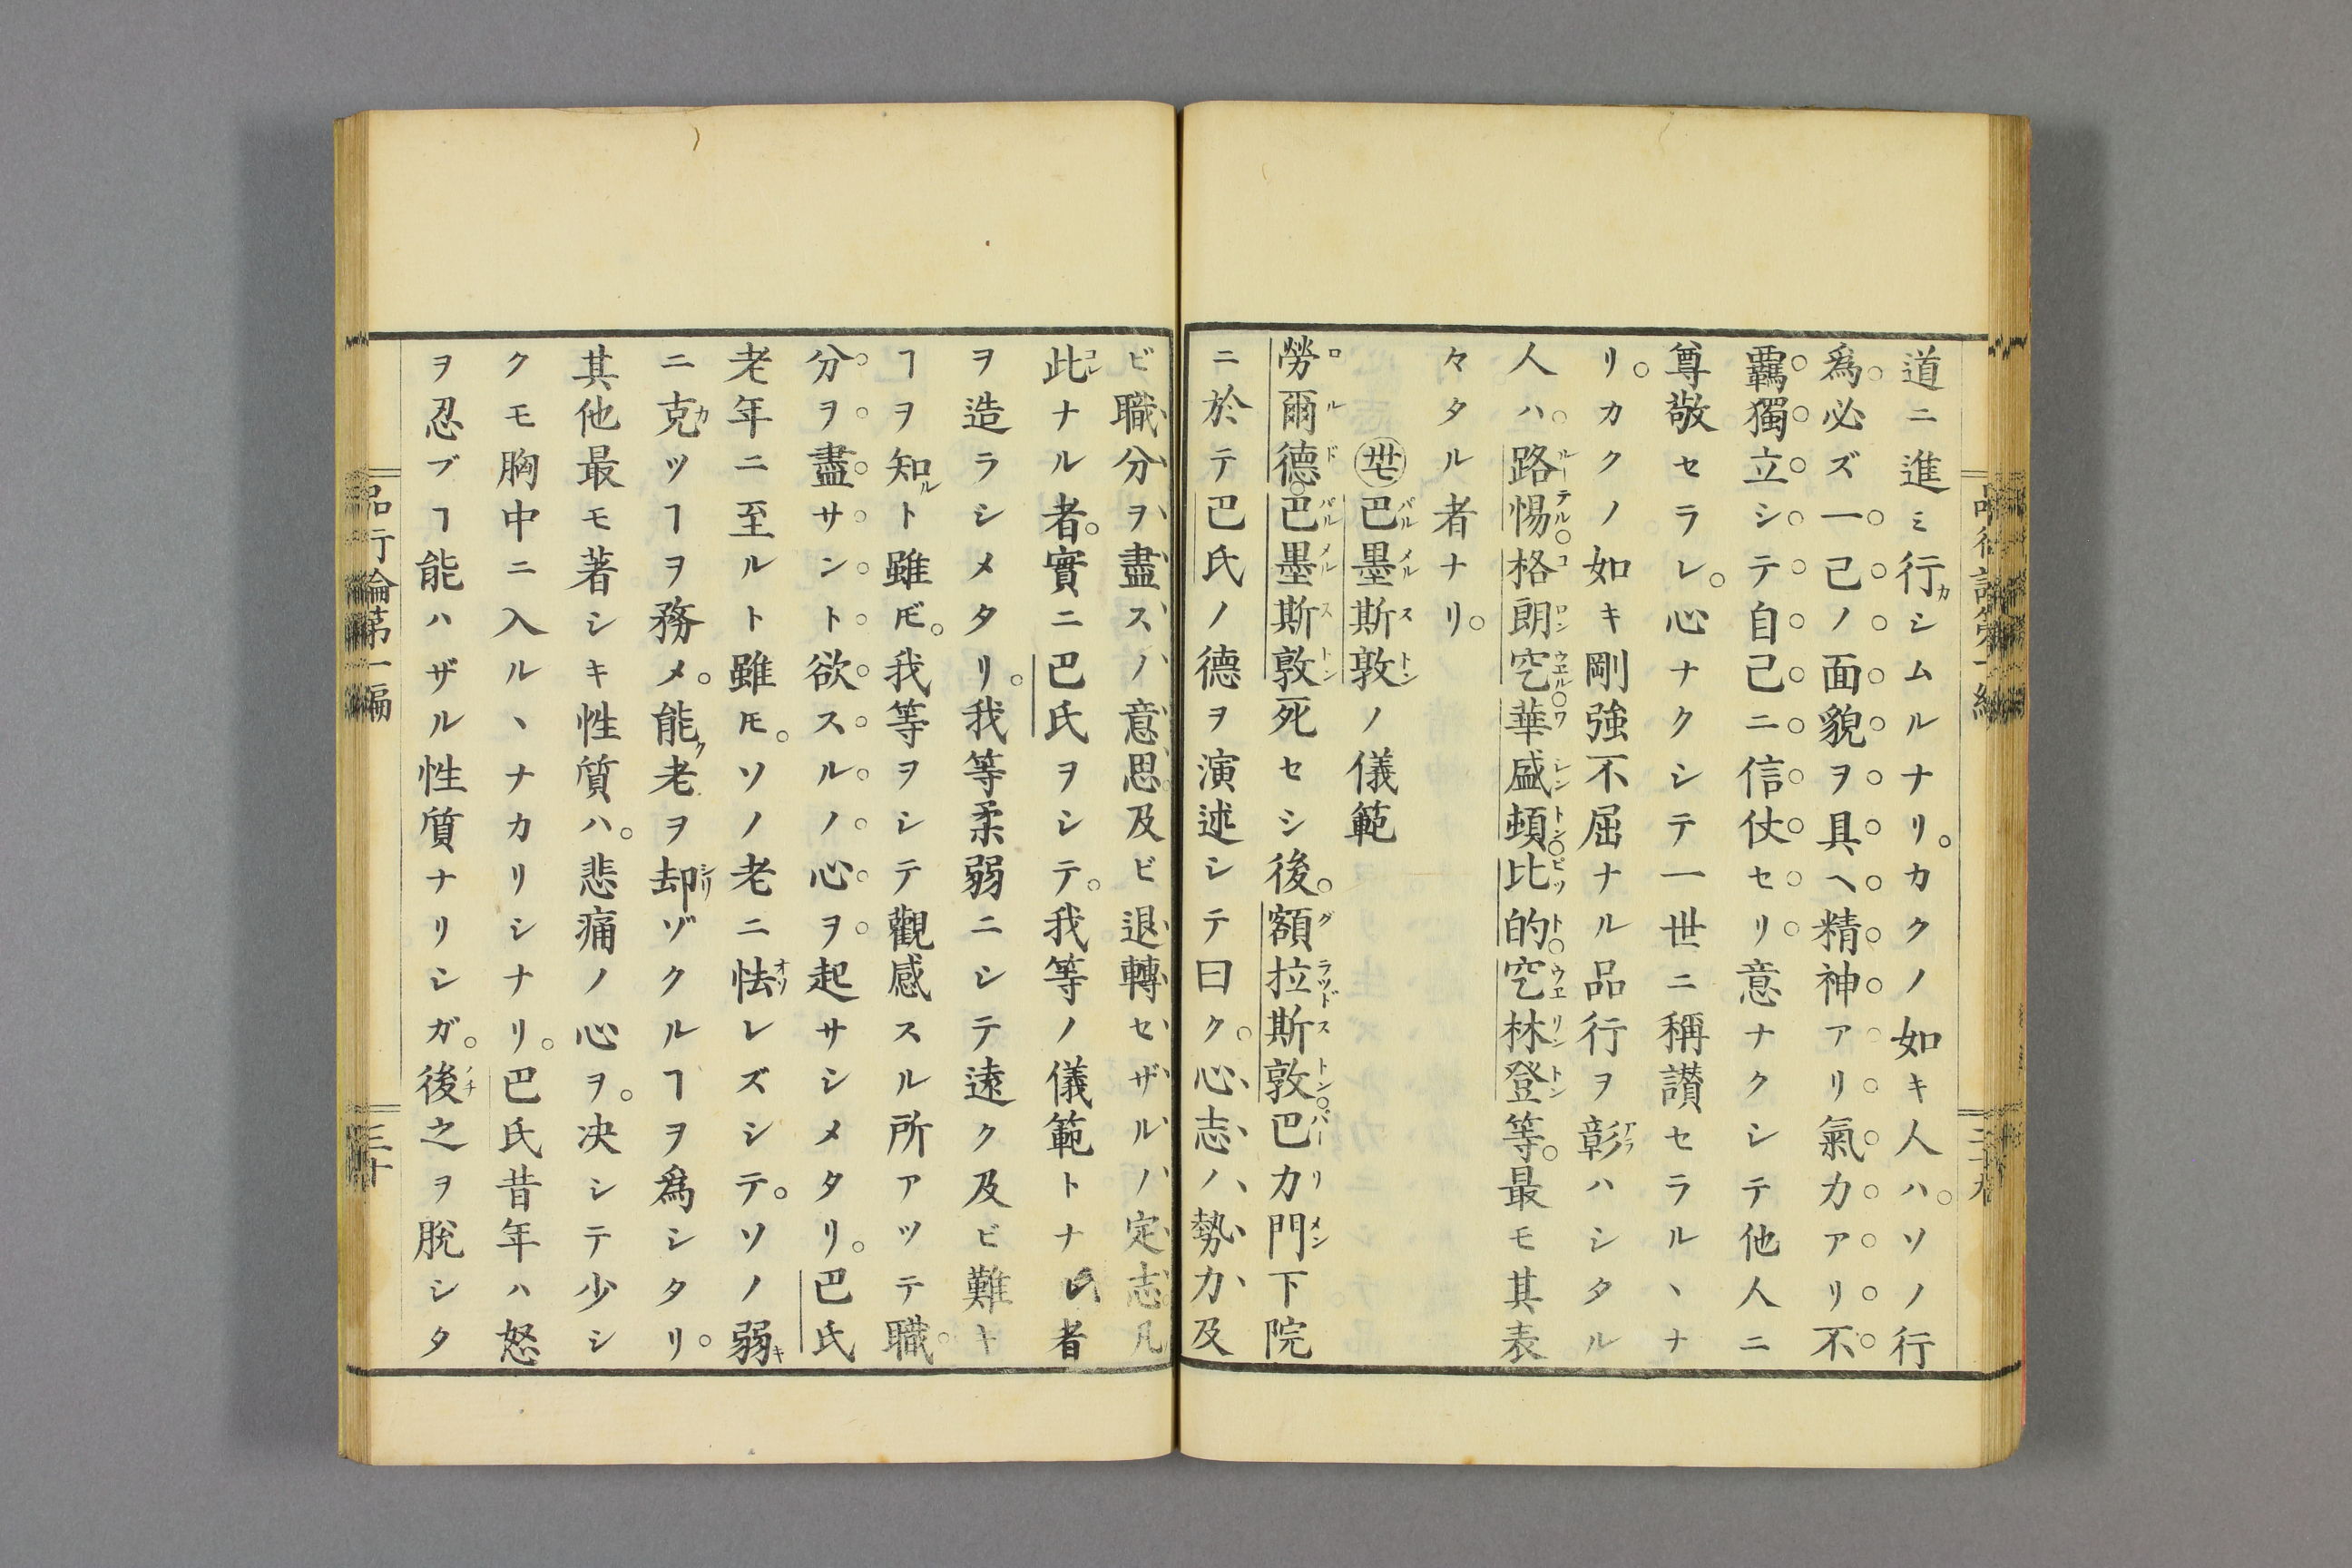 道ニ進ミ行シムルナリ。カクノ如キ人ハ。ソノ行
爲必ズ一己ノ面貌ヲ具ヘ精神アリ氣力アリ不
羈獨立シテ自己ニ信仗セリ意ナクシテ他人ニ
尊敬セラレ。心ナクシテ一世ニ稱讃セラルヽナ
リ。カクノ如キ剛強不屈ナル品行ヲ彰ハシタル
人ハ路惕。格朗空。華盛頓。比的。空林登等。最モ其表
々タル者ナリ。
巴墨斯敦ノ儀範
勞爾德。巴墨斯敦死セシ後。額拉斯敦。巴力門下院
ニ於テ巴氏ノ德ヲ演述シテ曰ク。心志ノ勢力及
ビ職分ヲ盡スノ意思及ビ退轉セザルノ定志凡
此ナル者。實ニ巴氏ヲシテ。我等ノ儀範トナレ者
ヲ造ラシメタリ。我等柔弱ニシテ遠ク及ビ難キ
ヿヲ知ルト雖𪜈。我等ヲシテ觀感スル所アツテ職
分ヲ盡サント欲スルノ心ヲ起サシメタリ。巴氏
老年ニ至ルト雖𪜈。ソノ老ニ怯レズシテ。ソノ弱キ
ニ克ツヿヲ務メ。能ク老ヲ却ゾクルヿヲ爲シタリ。
其他最モ著シキ性質ハ。悲痛ノ心ヲ。决シテ少シ
クモ胸中ニ入ルヽナカリシナリ。巴氏昔年ハ怒
ヲ忍ブヿ能ハザル性質ナリシガ。後之ヲ脫シタ
品行論第一編
三十